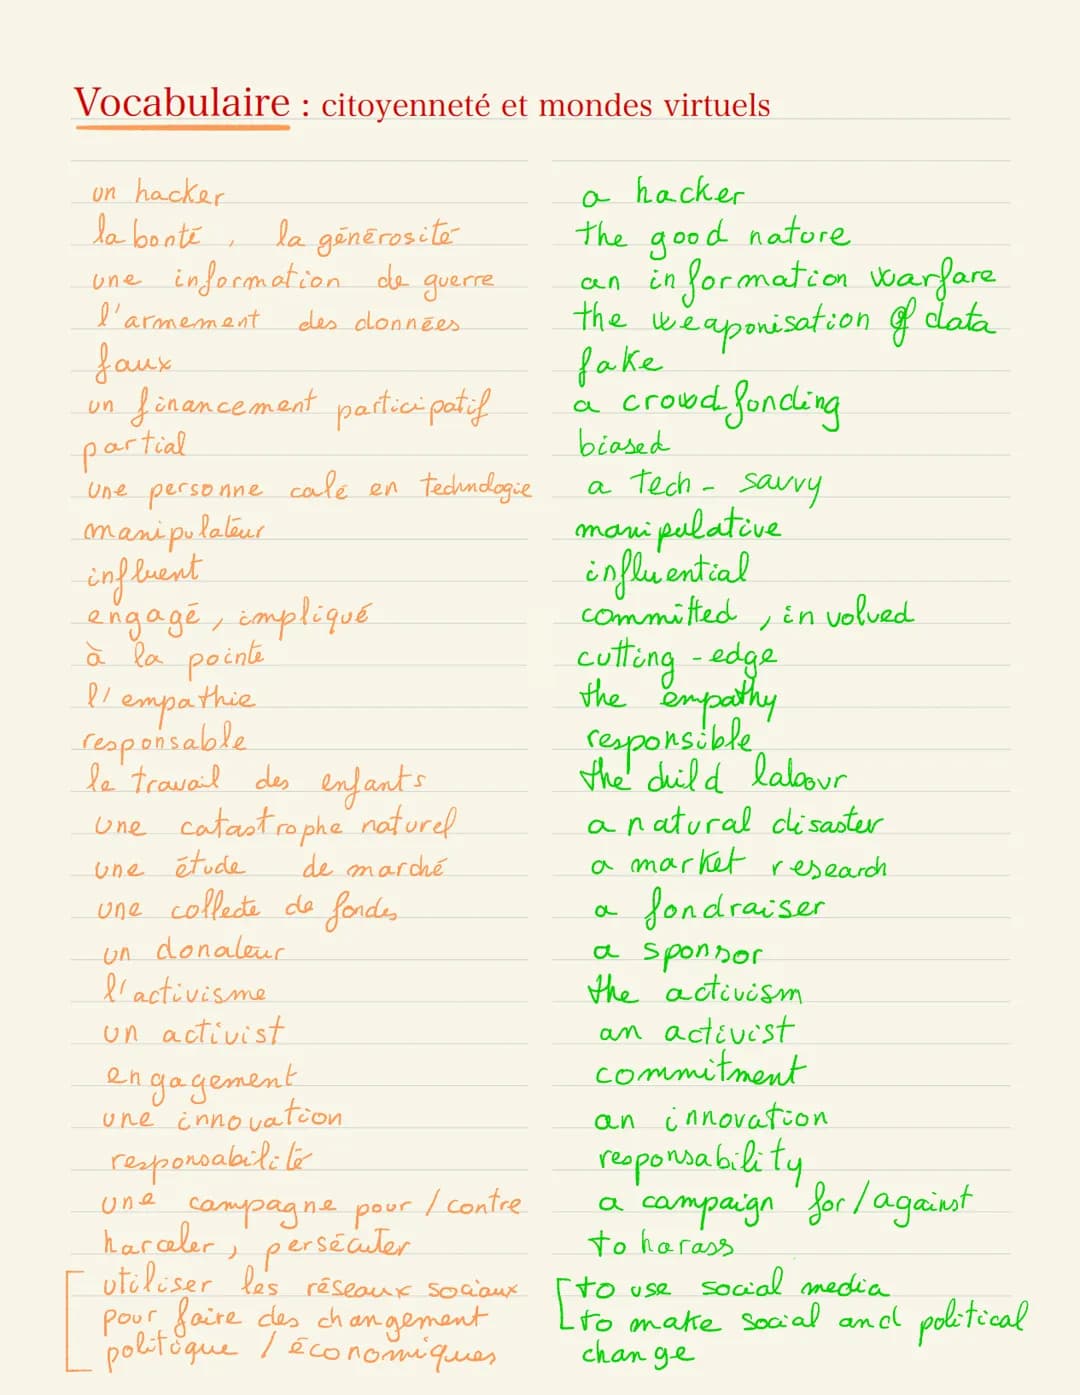 Vocabulaire : citoyenneté et mondes virtuels
un hacker a hacker
la bonté, la générosité the good nature
une information de guerre an information warfare
l'armement des données the weaponisation of data
faux fake
un financement participatif a crowdfonding
partial biased
une personne calé en technologie a tech-savvy
manipulateur manipulative
influent influential
engagé, impliqué committed, involved
à la pointe cutting-edge
l'empathie the empathy
responsable responsible
le travail des enfants the child labour
une catastrophe naturel a natural disaster
une étude de marché a market research
une collecte de fondes a fondraiser
un donateur a sponsor
l'activisme the activism
un activist an activist
engagement commitment
une innovation an innovation
responsabilité responsability
une campagne pour / contre a campaign for/against
harceler, persécuter to harass
utiliser les réseaux sociaux to use social media
pour faire des changement to make social and political
politique / économiques change